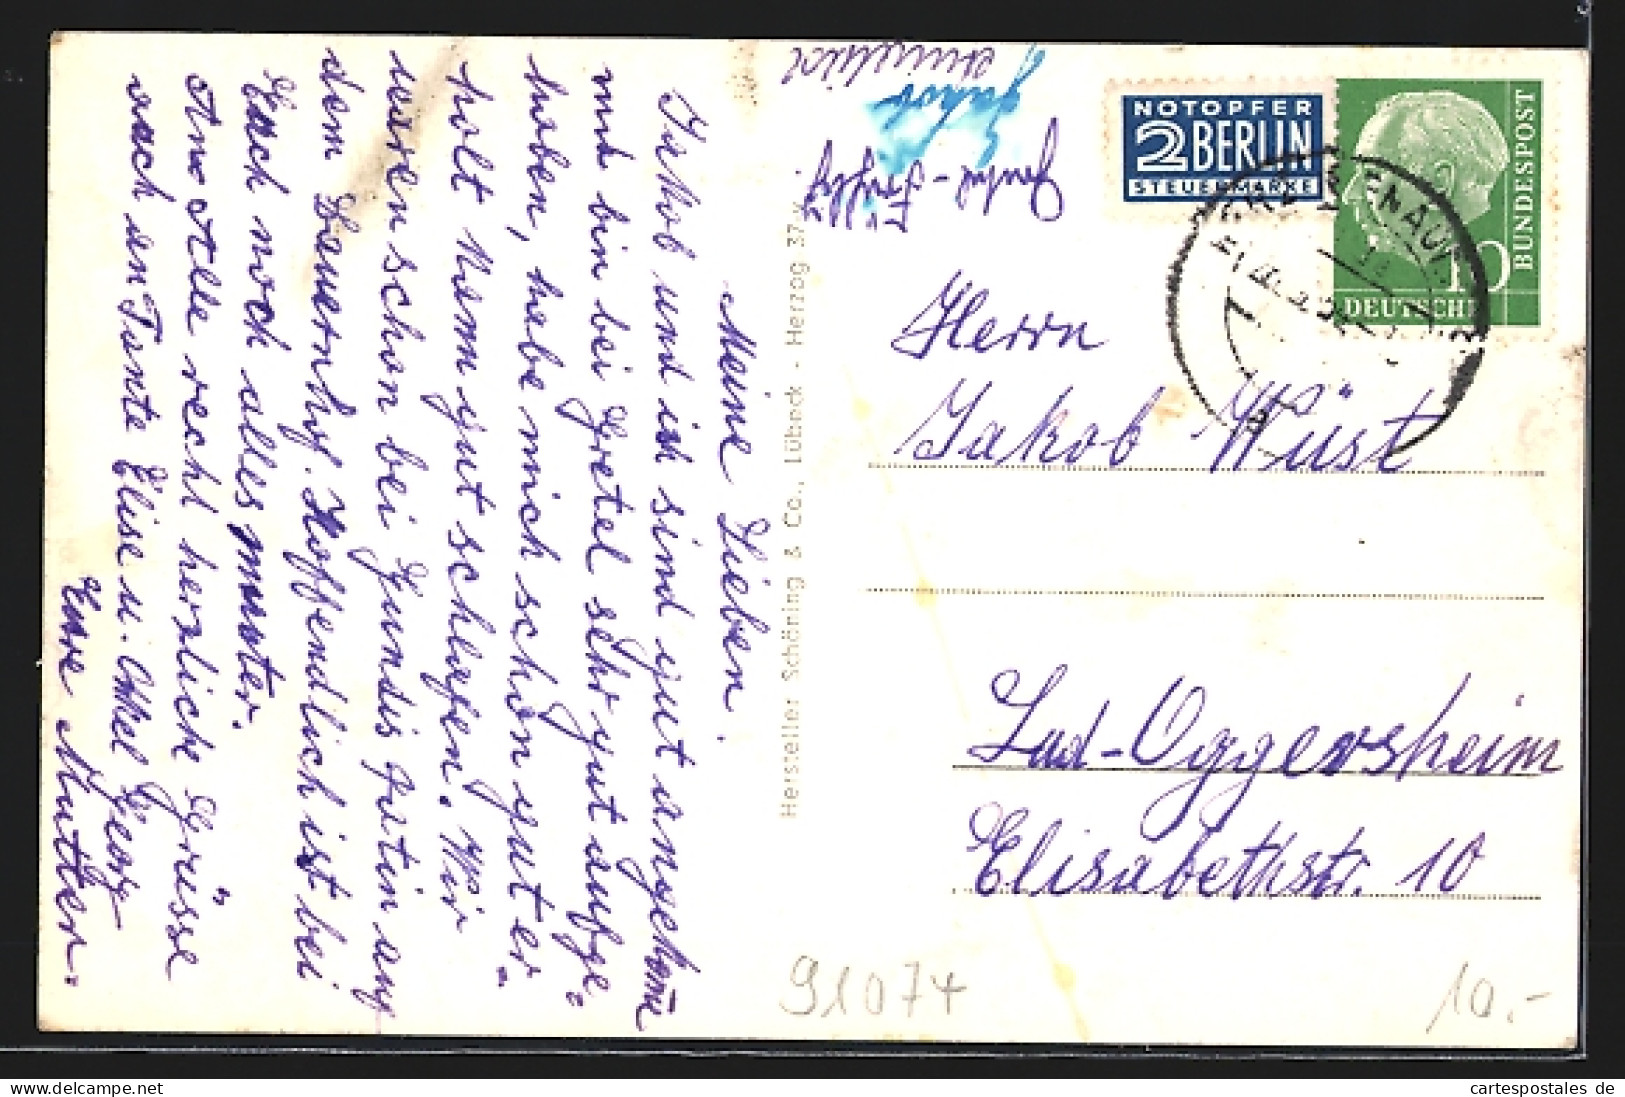 Meine Lieben.
Jakob und ich sind gut angekom̄
und bin bei Gretel sehr gut aufge=
hoben, habe mich schön gut er=
holt kenn gut schlafen. Wir
lassen schon bei Gundis
dem Hoffendlich ist bei
Euch noch alles munter.
An Alle recht herzliche Grüsse
auch an Tante Elise u. Onkel Georg
Eure Mutter.
Hersteller Schöning & Co., Lübeck - Herzog 37
Jakob
NOTOPFER
2 BERLIN
STEUERMARKE
10
BUNDESPOST
DEUTSCHE
Herrn
Jakob Wüst
Lud-Oggersheim
Elisabethstr. 10
91074
10.-
The Pink Ink
cartespostales de